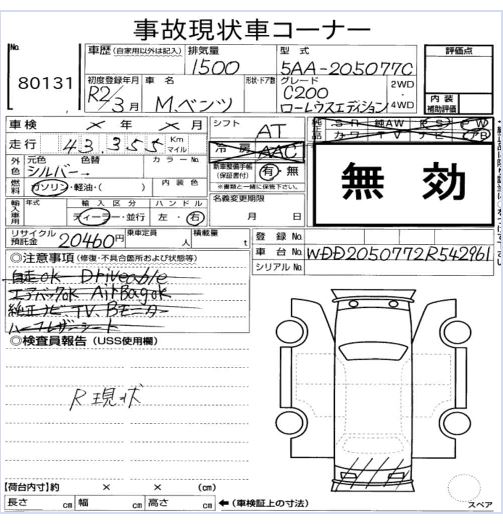 事故現状車コーナー
No. 80131
車歴 (自家用以外は記入) 排気量 1500 型式 5AA-205077C 評価点
初度登録年月 R2/3月 車名 M.ベンツ 形状・ドア数 グレード C200 ローレウスエディション 2WD・4WD 内装補助評価
車検 × 年 × 月 シフト AT
走行 43,355 Km マイル 冷房 AAC
純正品 サンR 純AW PS PW
カワ TV ナビ エアB
外色 元色 シルバー 色替 カラーNo. 新車整備手帳(保証書付) 有・無 ※書類と一緒に保管下さい。
燃料 ガソリン・軽油・( ) 内装色
無効
輸入車用 年式 輸入区分 ディーラー・並行 ハンドル 左・右 名義変更期限 月 日
リサイクル預託金 20460円 乗車定員 人 積載量 t 登録No.
車台No. WDD2050772R542961
シリアルNo.
◎注意事項 (修復・不具合箇所および状態等)
自走ok Driveable
エアバックok AirBagok
純正ナビ TV.Bモニター
ハーフレザーシート
◎検査員報告 (USS使用欄)
R現状
【荷台内寸】約 × × (cm)
長さ cm 幅 cm 高さ cm ←(車検証上の寸法)
スペア